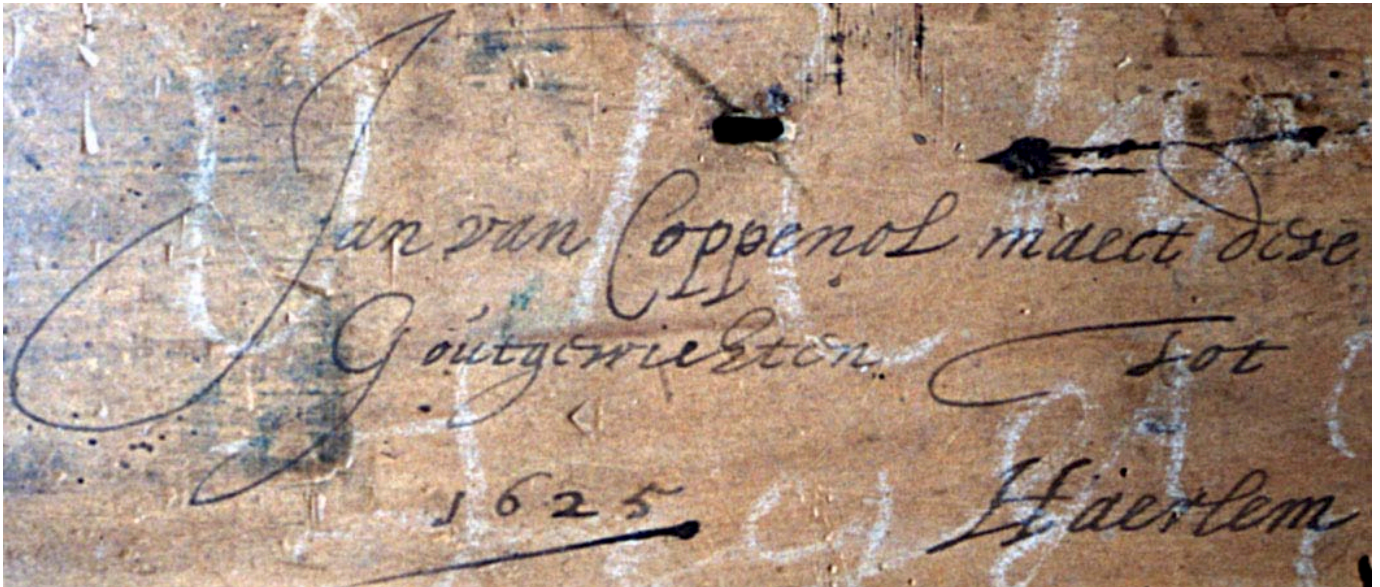 Jan van Coppenol maect dese
Goutgewichten tot
1625 Haerlem